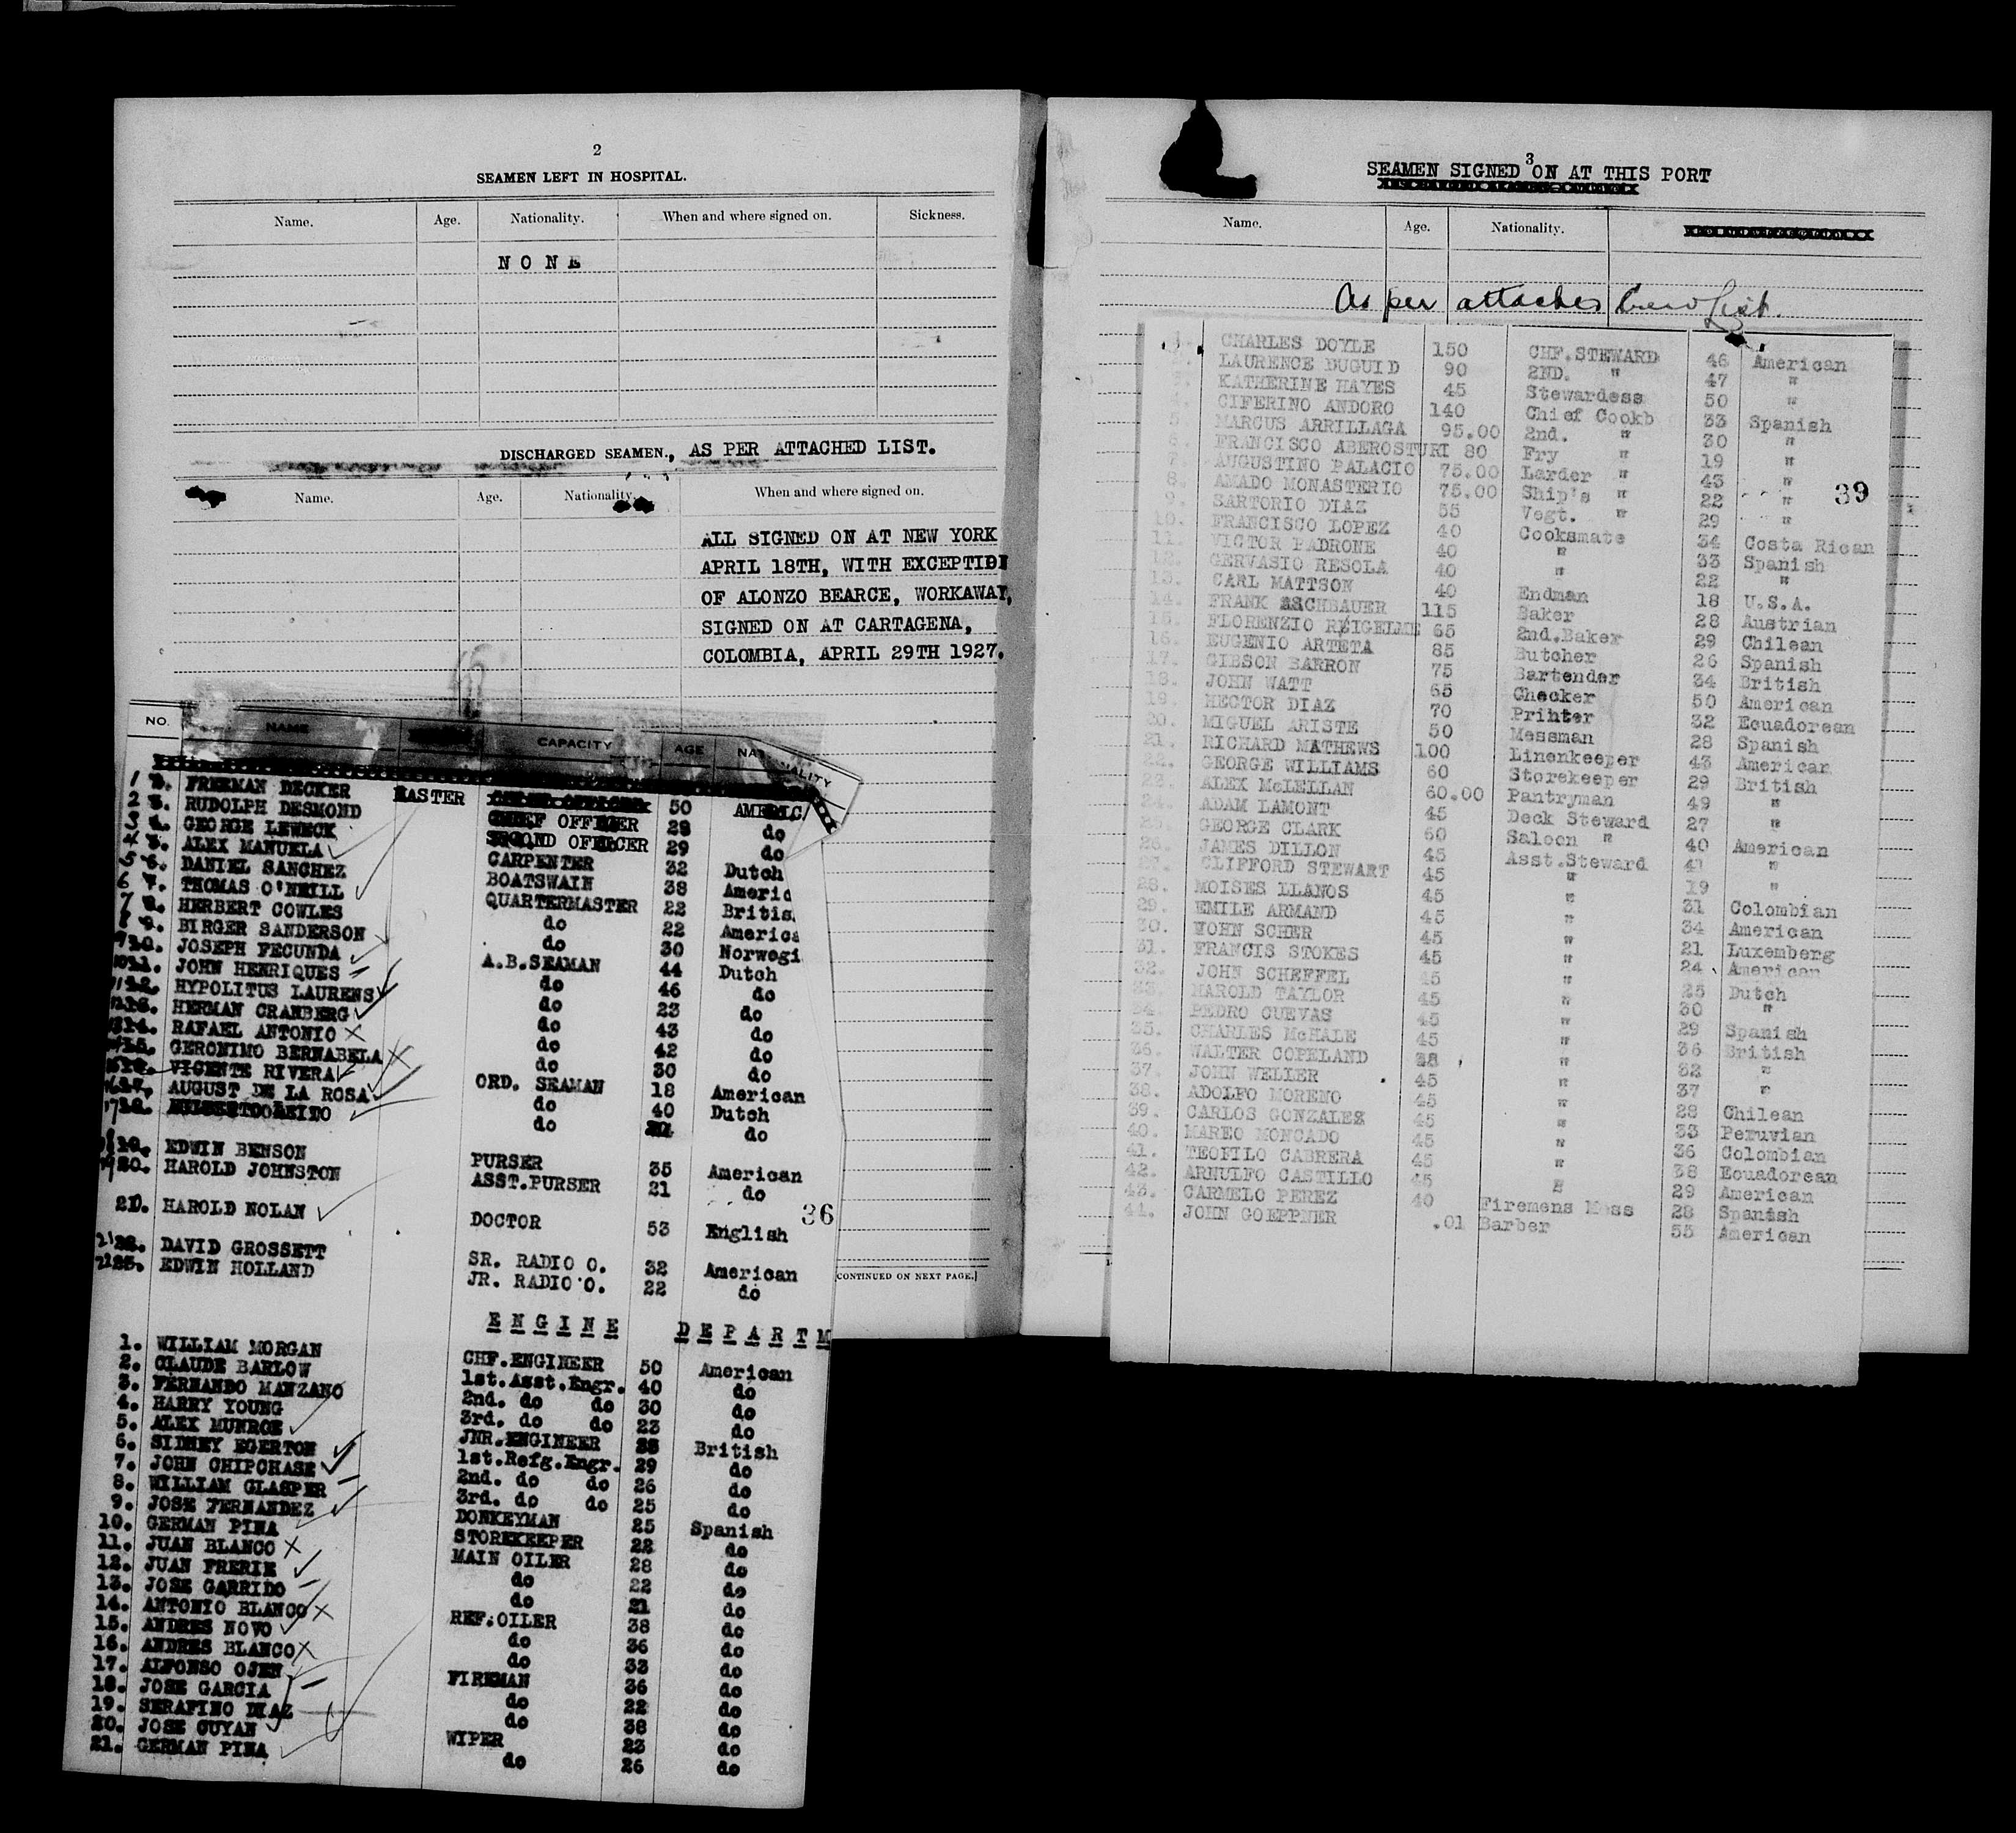 2
SEAMEN LEFT IN HOSPITAL.
Name. Age. Nationality. When and where signed on. Sickness.
NONE
DISCHARGED SEAMEN., AS PER ATTACHED LIST.
Name. Age. Nationality. When and where signed on.
ALL SIGNED ON AT NEW YORK
APRIL 18TH, WITH EXCEPTION
OF ALONZO BEARCE, WORKAWAY,
SIGNED ON AT CARTAGENA,
COLOMBIA, APRIL 29TH 1927.
NO. NAME CAPACITY AGE NATIONALITY
1 FREEMAN DECKER MASTER 50 AMERICA
2 RUDOLPH DESMOND CHIEF OFFICER 29 do
3 GEORGE LEWECK SECOND OFFICER 29 do
4 ALEX MANUELA CARPENTER 32 Dutch
5 DANIEL SANCHEZ BOATSWAIN 38 Americ
6 THOMAS O'NEILL QUARTERMASTER 22 Britis
7 HERBERT COWLES do 22 America
8 BIRGER SANDERSON do 30 Norwegi
9 JOSEPH FECUNDA A.B.SEAMAN 44 Dutch
10 JOHN HENRIQUES do 46 do
11 HYPOLITUS LAURENS do 23 do
12 HERMAN CRANBERG do 43 do
13 RAFAEL ANTONIO do 42 do
14 GERONIMO BERNABELA do 30 do
15 VICENTE RIVERA ORD. SEAMAN 18 American
16 AUGUST DE LA ROSA do 40 Dutch
17 do do
18 EDWIN BENSON PURSER 35 American
19 HAROLD JOHNSTON ASST.PURSER 21 do
36
20. HAROLD NOLAN DOCTOR 53 English
21 DAVID GROSSETT SR. RADIO O. 32 American
22 EDWIN HOLLAND JR. RADIO O. 22 do
(CONTINUED ON NEXT PAGE.)
ENGINE DEPARTM
1. WILLIAM MORGAN CHF.ENGINEER 50 American
2. CLAUDE BARLOW 1st.Asst.Engr. 40 do
3. FERNANDO MANZANO 2nd. do do 30 do
4. HARRY YOUNG 3rd. do do 23 do
5. ALEX MUNROE JNR.ENGINEER British
6. SIDNEY EGERTON 1st.Refg.Engr. 29 do
7. JOHN CHIPCHASE 2nd. do do 26 do
8. WILLIAM GLASPER 3rd. do do 25 do
9. JOSE FERNANDEZ DONKEYMAN 25 Spanish
10. GERMAN PINA STOREKEEPER 22 do
11. JUAN BLANCO MAIN OILER 28 do
12. JUAN FRERIE do 22 do
13. JOSE GARRIDO do 21 do
14. ANTONIO BLANCO REF.OILER 38 do
15. ANDRES NOVO do 36 do
16. ANDRES BLANCO do 33 do
17. ALFONSO OJEN FIREMAN 36 do
18. JOSE GARCIA do 22 do
19. SERAFINO DIAZ do 38 do
20. JOSE GUYAN WIPER 23 do
21. GERMAN PINA do 26 do
3
SEAMEN SIGNED ON AT THIS PORT
Name. Age. Nationality.
As per attaches Crew List.
1. CHARLES DOYLE 150 CHF.STEWARD 46 American
LAURENCE DUGUID 90 2ND. " 47 "
KATHERINE HAYES 45 Stewardess 50 "
CIFERINO ANDORO 140 Chief Cookb 33 Spanish
5. MARCUS ARRILLAGA 95.00 2nd. " 30 "
6. FRANCISCO ABEROSTURI 80 Fry " 19 "
7. AUGUSTINO PALACIO 75.00 Larder " 43 "
8. AMADO MONASTERIO 75.00 Ship's " 22 "
39
9. SARTORIO DIAZ 55 Vegt. " 29 "
10. FRANCISCO LOPEZ 40 Cooksmate 34 Costa Rican
11. VICTOR PADRONE 40 " 33 Spanish
12. GERVASIO RESOLA 40 " 22 "
13. CARL MATTSON 40 Endman 18 U.S.A.
14. FRANK 115 Baker 28 Austrian
15. FLORENZIO REIGELME 65 2nd.Baker 29 Chilean
16. EUGENIO ARTETA 85 Butcher 26 Spanish
17. GIBSON BARRON 75 Bartender 34 British
18. JOHN WATT 65 Checker 50 American
19. HECTOR DIAZ 70 Printer 32 Ecuadorean
20. MIGUEL ARISTE 50 Messman 28 Spanish
21. RICHARD MATHEWS 100 Linenkeeper 43 American
22. GEORGE WILLIAMS 60 Storekeeper 29 British
23. ALEX McLELLAN 60.00 Pantryman 49 "
24. ADAM LAMONT 45 Deck Steward 27 "
25. GEORGE CLARK 60 Saloon " 40 American
26. JAMES DILLON 45 Asst.Steward 41 "
27. CLIFFORD STEWART 45 " 19 "
28. MOISES LLANOS 45 " 31 Colombian
29. EMILE ARMAND 45 " 34 American
30. JOHN SCHER 45 " 21 Luxemberg
31. FRANCIS STOKES 45 " 24 American
32. JOHN SCHEFFEL 45 " 25 Dutch
33. HAROLD TAYLOR 45 " 30 "
34. PEDRO CUEVAS 45 " 29 Spanish
35. CHARLES McHALE 45 " 36 British
36. WALTER COPELAND 38 " 32 "
37. JOHN WELLER 45 " 37 "
38. ADOLFO MORENO 45 " 28 Chilean
39. CARLOS GONZALEZ 45 " 33 Peruvian
40. MARFO MONCADO 45 " 36 Colombian
41. TEOFILO CABRERA 45 " 38 Ecuadorean
42. ARNULFO CASTILLO 45 " 29 American
43. CARMELO PEREZ 40 Firemens Mess 28 Spanish
44. JOHN GOEPPNER .01 Barber 55 American